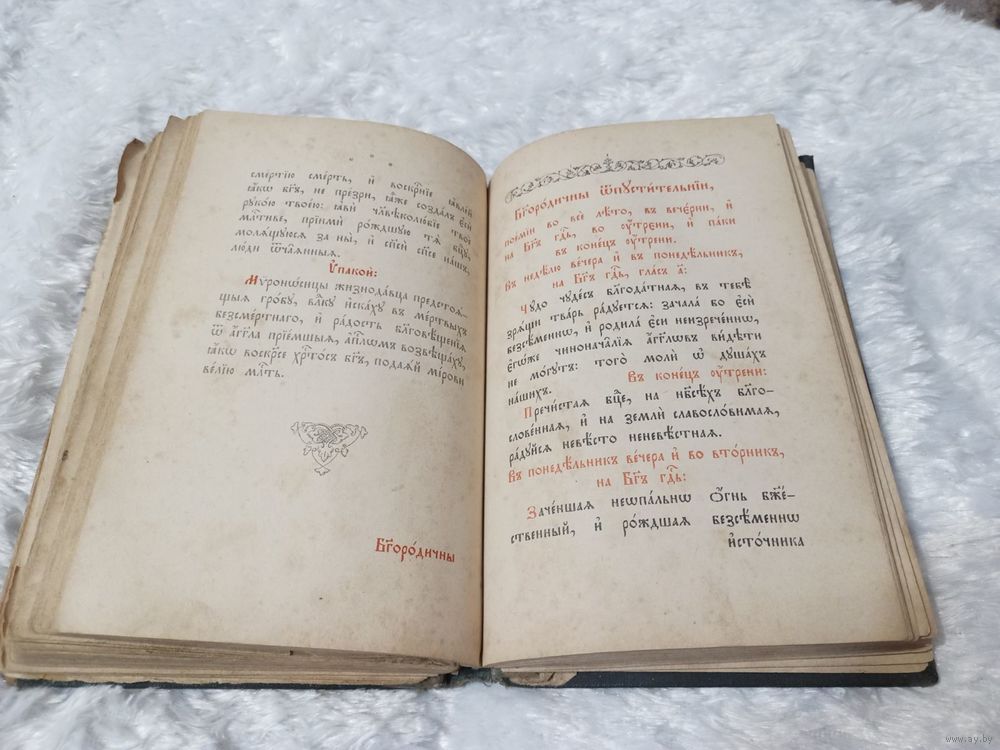 сме́ртїю сме́рть, и҆ воскрⷭ҇нїе ꙗ҆вле́й
ꙗ҆́кѡ бг҃ъ, не пре́зри, ꙗ҆̀же созда́лъ є҆сѝ
рꙋко́ю твое́ю: ꙗ҆вѝ чл҃вѣколю́бїе твоѐ
млⷭ҇тиве, прїимѝ ро́ждшꙋю тѧ̀ бц҃ꙋ,
молѧ́щꙋюсѧ за ны̀, и҆ сп҃сѝ сп҃се на́шъ,
лю́ди ѿча́ѧнныѧ.
Ѵ҆пакоѝ:
Мѷроно́сицы жизнода́вца предстоѧ́-
щыѧ гро́бꙋ, влⷣкꙋ и҆ска́хꙋ въ ме́ртвыхъ
безсме́ртнаго, и҆ ра́дость бл҃говѣще́нїѧ
ѿ а҆́гг҃ла прїе́мшыѧ, а҆пⷭ҇лѡмъ возвѣща́хꙋ,
ꙗ҆́кѡ воскр҃се хрⷭ҇то́съ бг҃ъ, пода́ѧй мі́рови
ве́лїю млⷭ҇ть.
Бг҃оро́дичны
Бг҃оро́дичны ѿпꙋсти́тельнїи,
пое́мїи во всѐ лѣ́то, въ вече́рни, и҆
на Бг҃ъ гдⷭ҇ь, во ᲂу҆́трени, и҆ па́ки
въ коне́цъ ᲂу҆́трени.
Въ недѣ́лю ве́чера и҆ въ понедѣ́льникъ,
на Бг҃ъ гдⷭ҇ь, гла́съ а҃:
Чꙋ́до чꙋде́съ бл҃года́тнаѧ, въ тебѣ̀
зрѧ́щи тва́рь ра́дꙋетсѧ: зачала́ бо є҆сѝ
безсѣ́меннѡ, и҆ родила̀ є҆сѝ неизрече́ннѡ,
є҆гѡ́же чинонача̑лїѧ а҆́гг҃лѡвъ ви́дѣти
не мо́гꙋтъ: того̀ молѝ ѡ҆ дꙋша́хъ
на́шихъ. Въ коне́цъ ᲂу҆́трени:
Пречи́стаѧ бц҃е, на нб҃сѣ́хъ бл҃го-
слове́ннаѧ, и҆ на землѝ славосло́вимаѧ,
ра́дꙋйсѧ невѣ́сто неневѣ́стнаѧ.
Въ понедѣ́льникъ ве́чера и҆ во вто́рникъ,
на Бг҃ъ гдⷭ҇ь:
Заче́ншаѧ неѡпа́льнѡ ѻ҆́гнь бж҃е́-
ственный, и҆ ро́ждшаѧ безсѣ́меннѡ
и҆сто́чника
www.ay.by